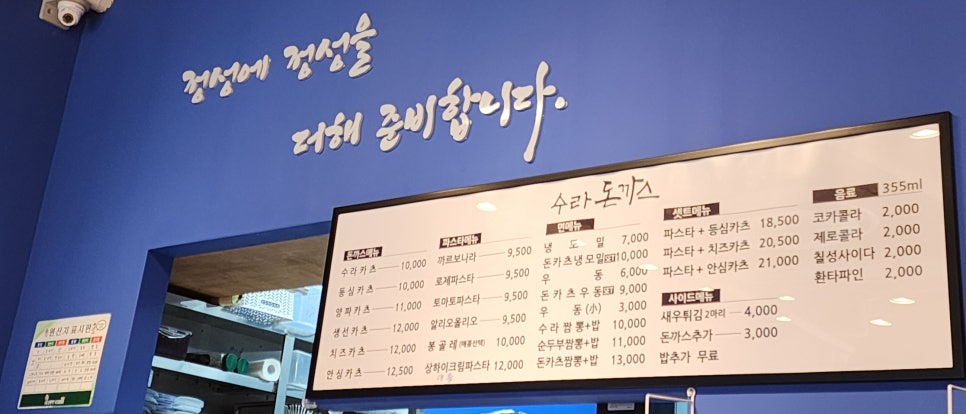 정성에 정성을
더해 준비합니다.
수라 돈까스
돈까스메뉴
수라카츠 10,000
등심카츠 10,000
양파카츠 11,000
생선카츠 12,000
치즈카츠 12,000
안심카츠 12,500
파스타메뉴
까르보나라 9,500
로제파스타 9,500
토마토파스타 9,500
알리오올리오 9,500
봉골레(매콤선택) 10,000
상하이크림파스타 12,000
면메뉴
냉 도 밀 7,000
돈카츠냉모밀SET 10,000
우 동 6,000
돈카츠우동SET 9,000
우 동(小) 3,000
수라짬뽕+밥 10,000
순두부짬뽕+밥 11,000
돈카츠짬뽕+밥 13,000
셋트메뉴
파스타+등심카츠 18,500
파스타+치즈카츠 20,500
파스타+안심카츠 21,000
사이드메뉴
새우튀김2마리 4,000
돈까스추가 3,000
밥추가 무료
음료 355ml
코카콜라 2,000
제로콜라 2,000
칠성사이다 2,000
환타파인 2,000
원산지표시판